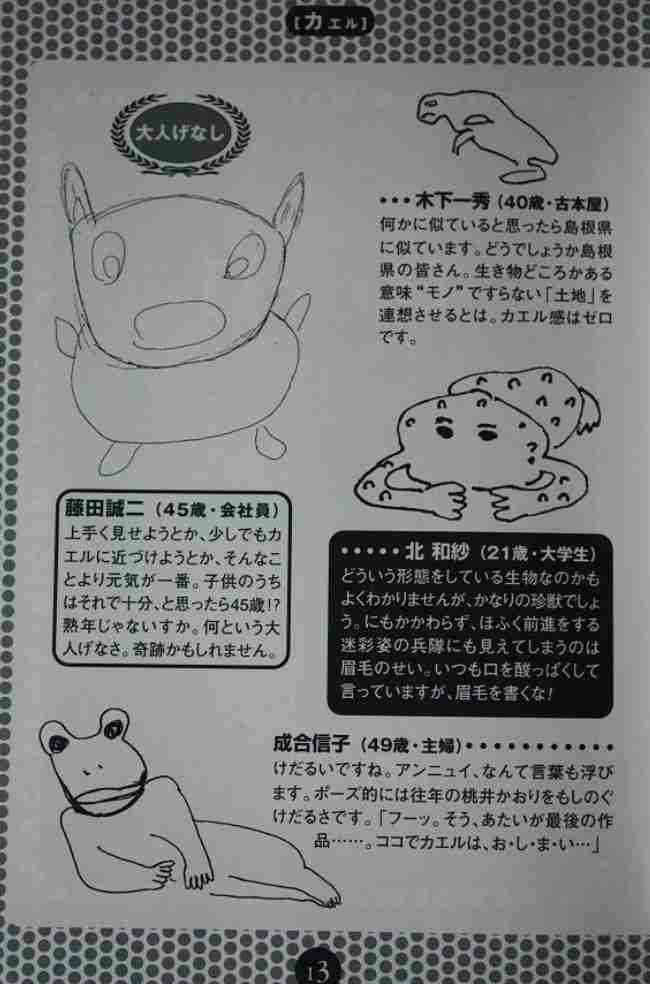 [カエル]
大人げなし
•••木下一秀(40歳・古本屋)
何かに似ていると思ったら島根県
に似ています。どうでしょうか島根
県の皆さん。生き物どころかある
意味“モノ”ですらない「土地」を
連想させるとは。カエル感はゼロ
です。
藤田誠二(45歳・会社員)
上手く見せようとか、少しでもカ
エルに近づけようとか、そんなこ
とより元気が一番。子供のうち
はそれで十分、と思ったら45歳!?
熟年じゃないすか。何という大
人げなさ。奇跡かもしれません。
•••••北 和紗(21歳・大学生)
どういう形態をしている生物なのかも
よくわかりませんが、かなりの珍獣でしょ
う。にもかかわらず、ほふく前進をする
迷彩姿の兵隊にも見えてしまうのは
眉毛のせい。いつも口を酸っぱくして
言っていますが、眉毛を書くな!
成合信子(49歳・主婦)•••••••••••
けだるいですね。アンニュイ、なんて言葉も浮び
ます。ポーズ的には往年の桃井かおりをもしのぐ
けだるさです。「フーッ。そう、あたいが最後の作
品……。ココでカエルは、お・し・ま・い…」
13